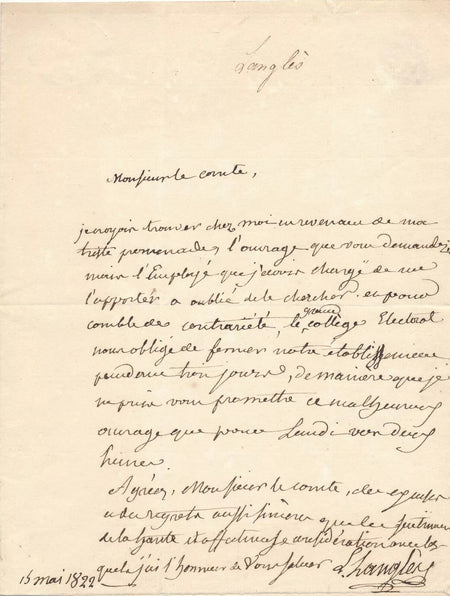 Langlès
Monsieur le comte,
je croyois trouver chez moi en revenant de ma
triste promenade, l'ouvrage que vous demandez
mais l'Employé que j'avois chargé de me
l'apporter a oublié de le chercher. et pour
comble de contrariété, le grand collège Electoral
nous oblige de fermer notre établissement
pendant trois jours, de maniere que je
ne puis vous promettre ce malheureux
ouvrage que pour Lundi vers deux
heures.
Agréez, Monsieur le comte, des excuses
et des regrets aussi sincères que les sentimens
de la haute et affectueuse considération avec les-
quels j'ai l'honneur de vous saluer L. Langlès
15 mai 1822